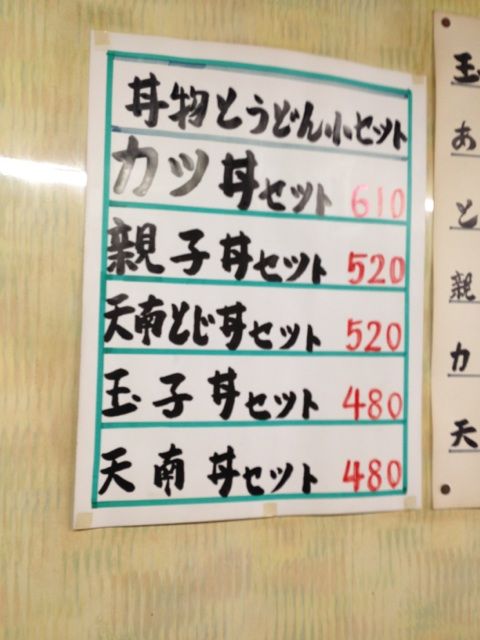 丼物とうどん小セット
カツ丼セット 610
親子丼セット 520
天南とじ丼セット 520
玉子丼セット 480
天南丼セット 480
玉
あ
と
親
カ
天